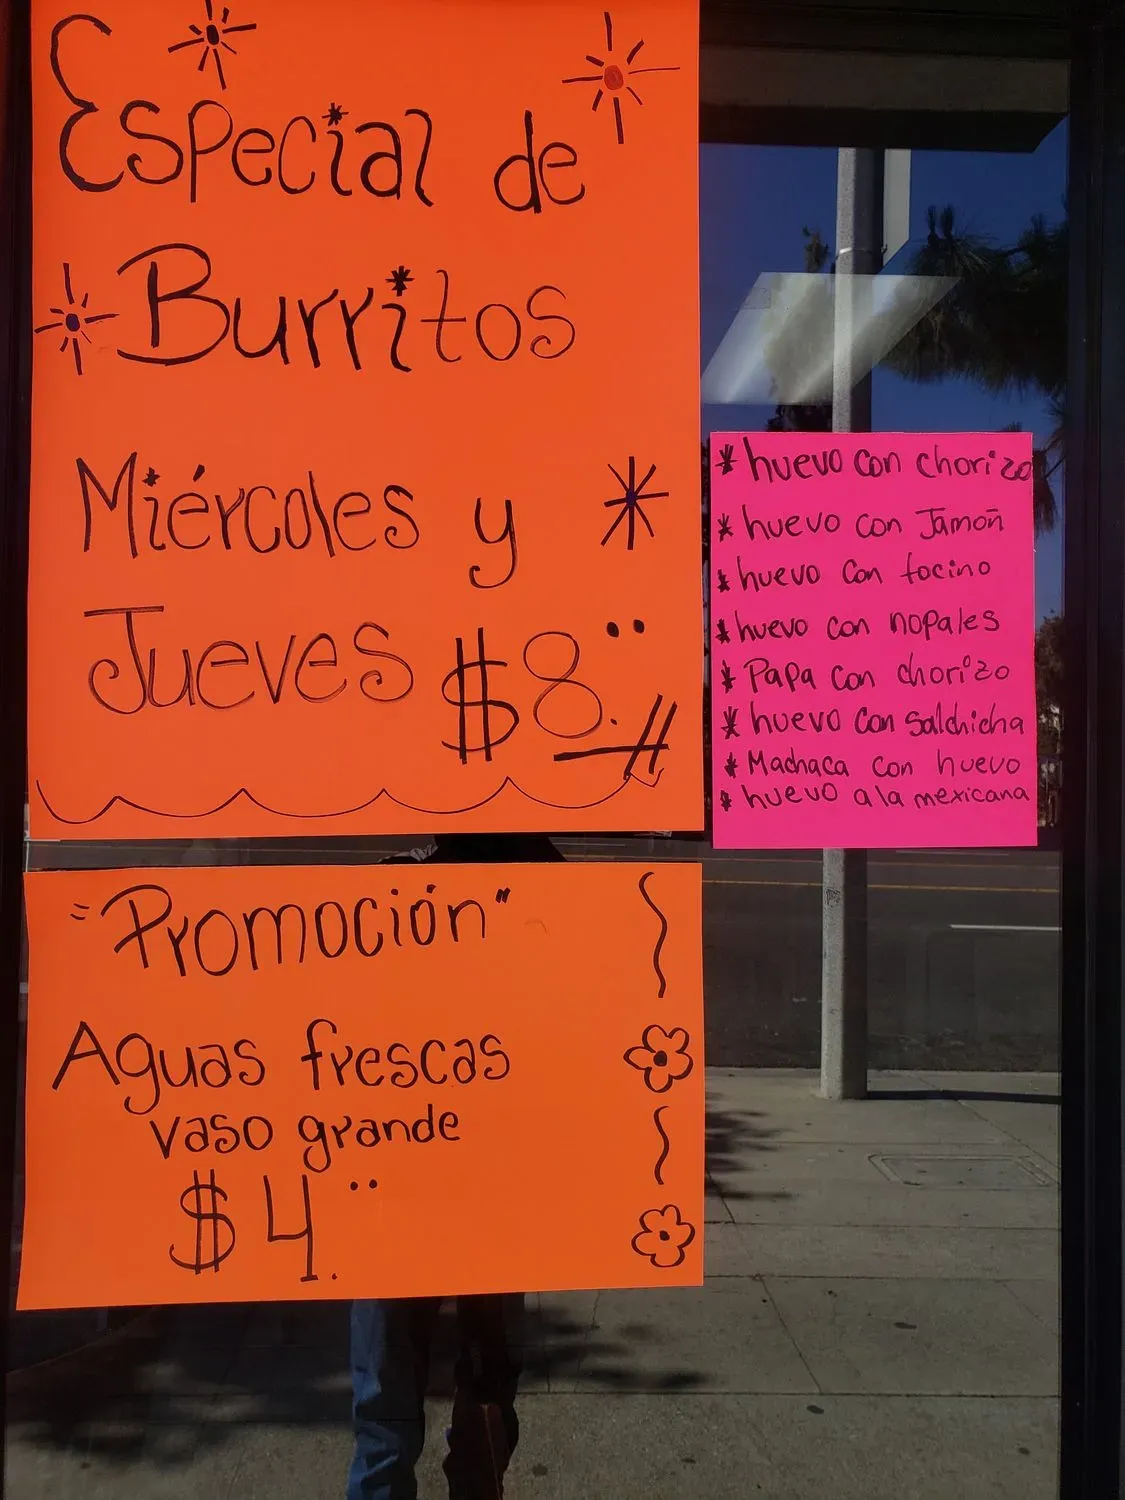 Especial de
Burritos
Miércoles y
Jueves $8.
"Promoción"
Aguas frescas
vaso grande
$4.
* huevo con chorizo
* huevo con Jamón
* huevo con tocino
* huevo con nopales
* Papa con chorizo
* huevo con salchicha
* Machaca con huevo
* huevo a la mexicana